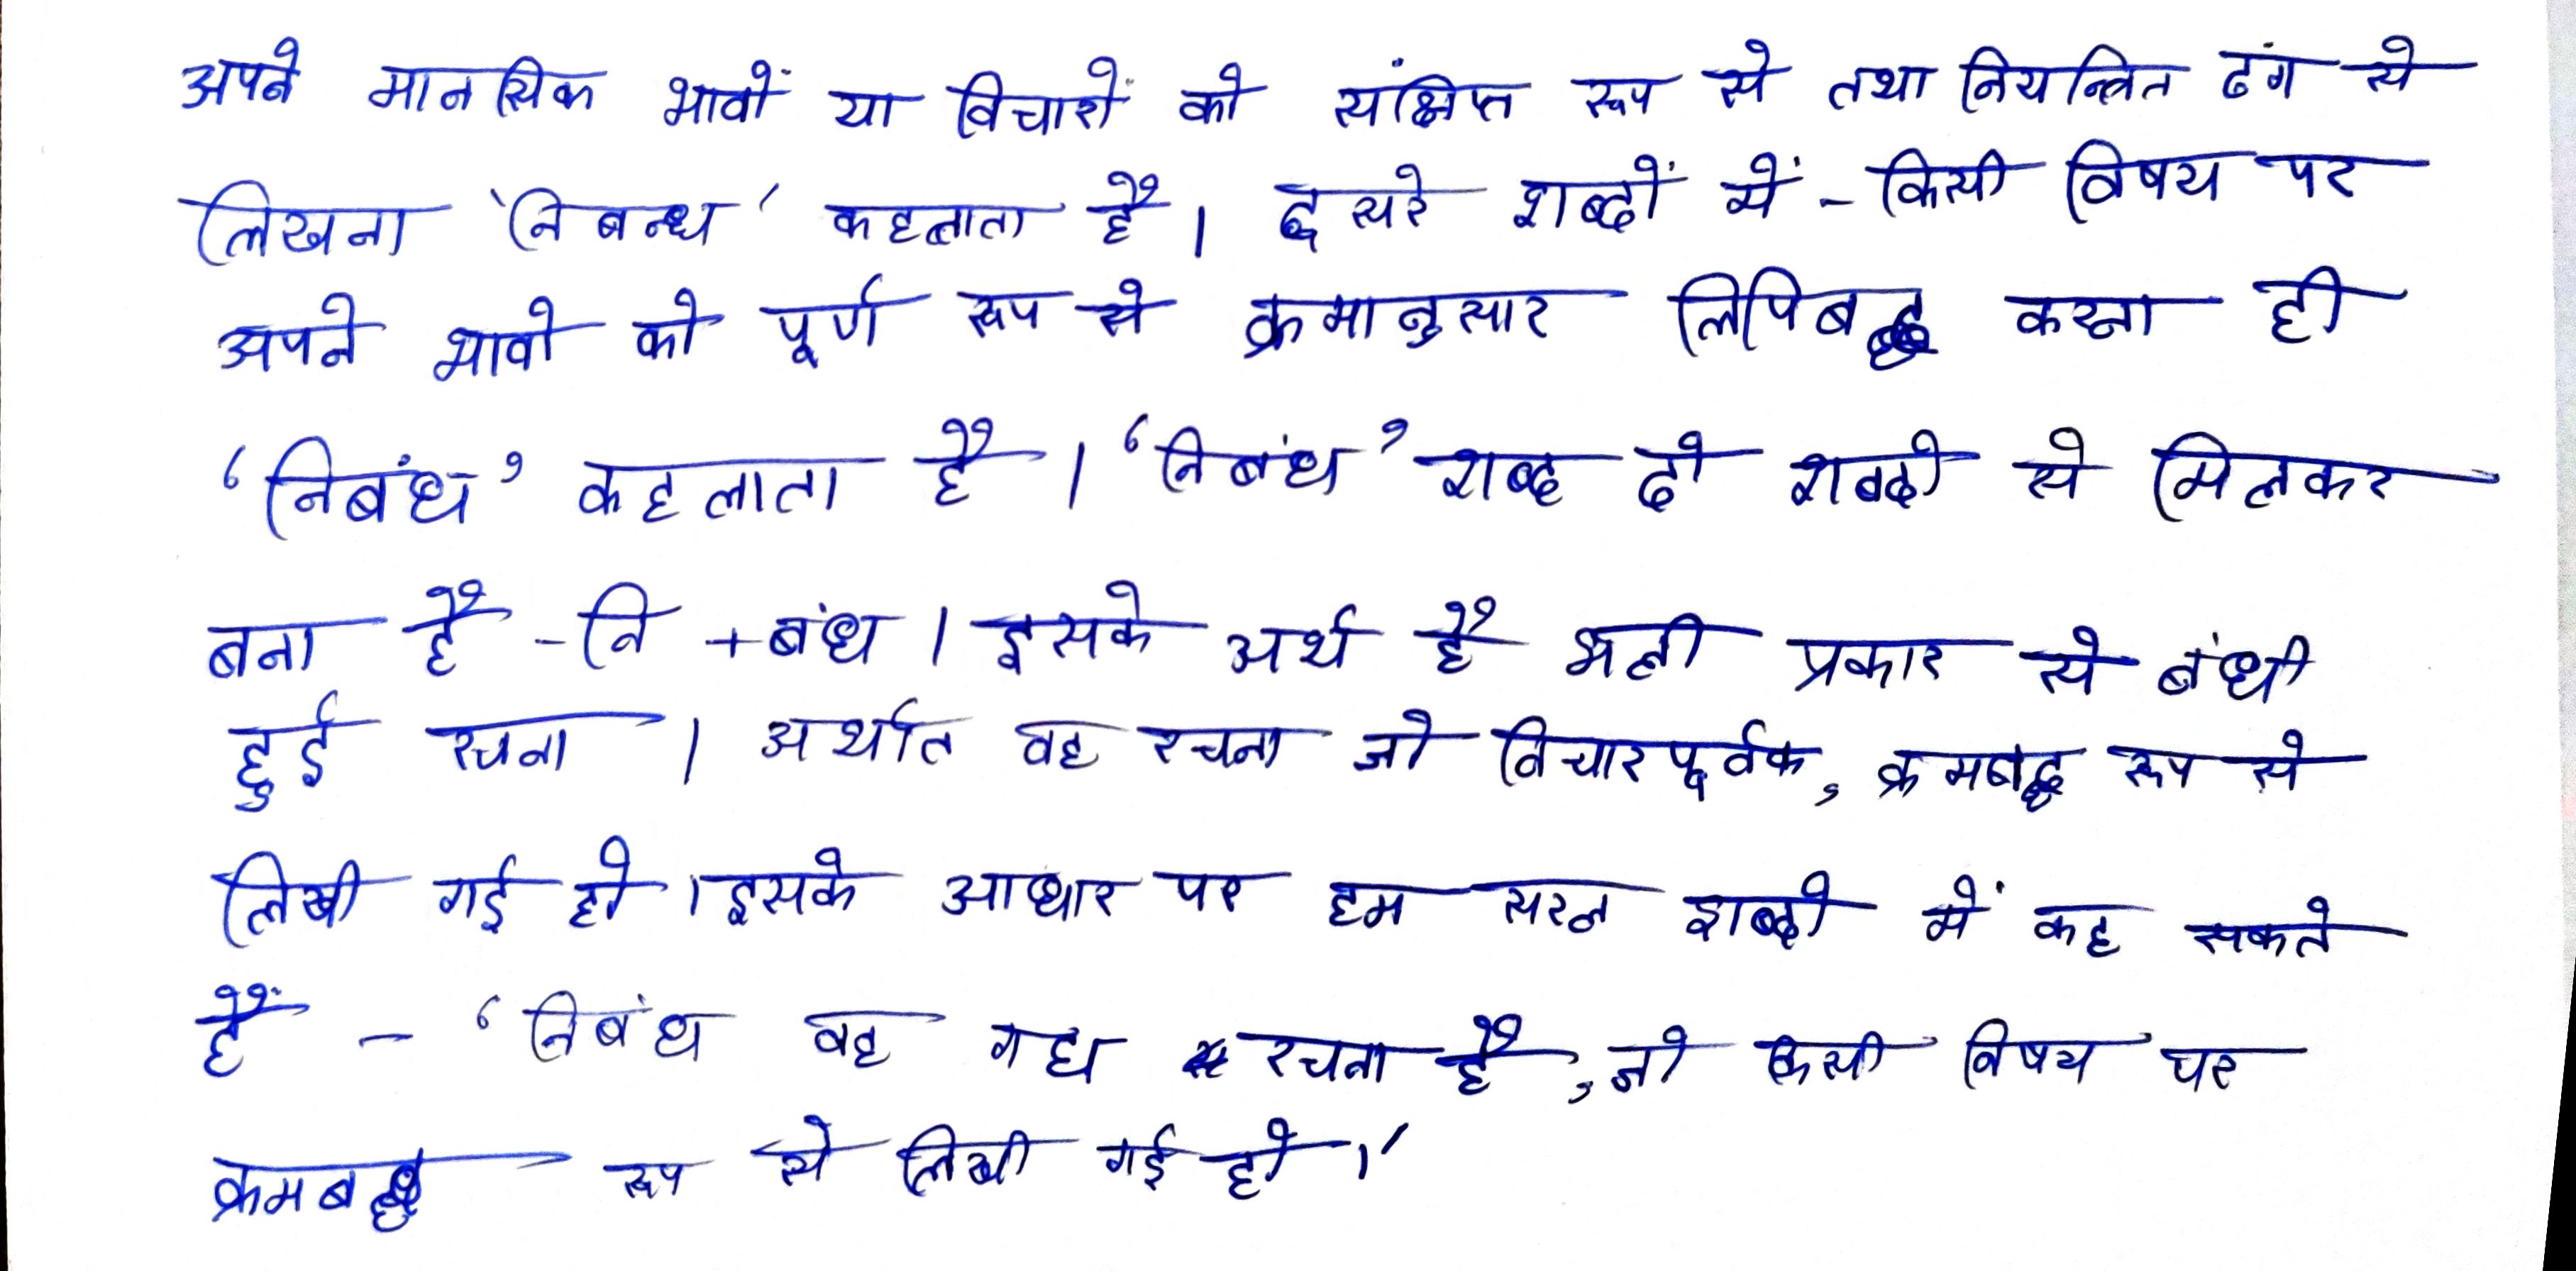 अपने मानसिक भावों या विचारों को संक्षिप्त रूप से तथा नियन्त्रित ढंग से
लिखना 'निबन्ध' कहलाता है। दूसरे शब्दों में - किसी विषय पर
अपने भावो को पूर्ण रूप से क्रमानुसार लिपिबद्ध करना ही
'निबंध' कहलाता है। 'निबंध' शब्द दो शब्दो से मिलकर
बना है - नि + बंध। इसके अर्थ है भली प्रकार से बंधी
हुई रचना। अर्थात वह रचना जो विचारपूर्वक, क्रमबद्ध रूप से
लिखी गई हो। इसके आधार पर हम सरल शब्दो में कह सकते
हैं - 'निबंध वह गद्य रचना है, जो किसी विषय पर
क्रमबद्ध रूप से लिखी गई हो।'